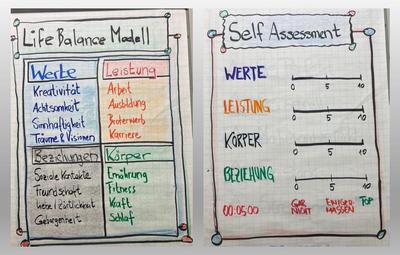 Life Balance Modell
Werte
Kreativität
Achtsamkeit
Sinnhaftigkeit
Träume & Visionen
Leistung
Arbeit
Ausbildung
Broterwerb
Karriere
Beziehungen
Soziale Kontakte
Freundschaft
Liebe / Zärtlichkeit
Geborgenheit
Körper
Ernährung
Fitness
Kraft
Schlaf
Self Assessment
WERTE
0 5 10
LEISTUNG
0 5 10
KÖRPER
0 5 10
BEZIEHUNG
0 5 10
00:05:00
GAR
NICHT
EINIGER-
MASSEN
TOP